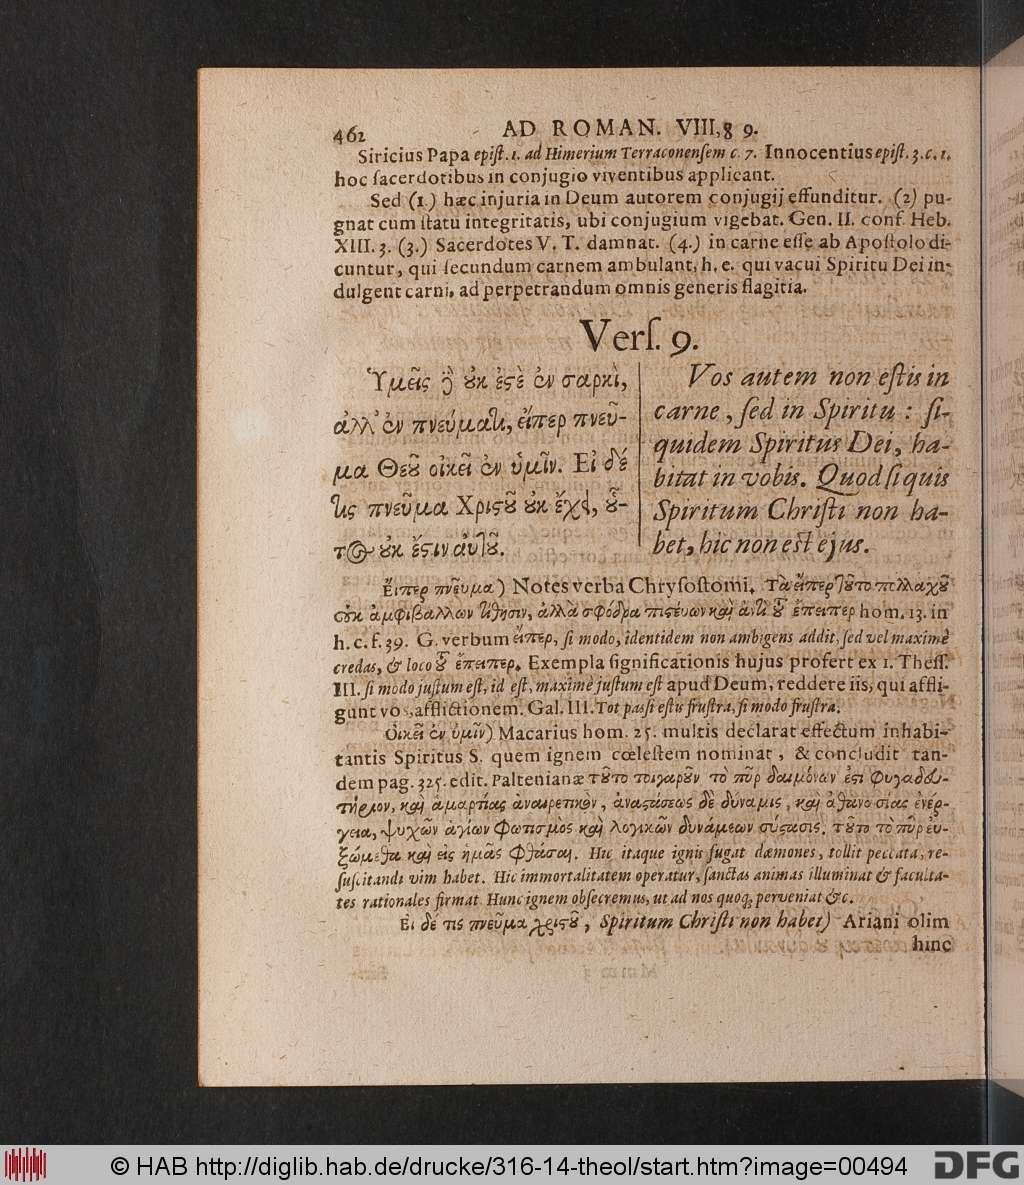 462 AD ROMAN. VIII, 8 9.
Siricius Papa epiſt. 1. ad Himerium Terraconenſem c. 7. Innocentius epiſt. 3. c. 1.
hoc ſacerdotibus in conjugio viventibus applicant.
Sed (1.) hæc injuria in Deum autorem conjugij effunditur. (2) pu-
gnat cum ſtatu integritatis, ubi conjugium vigebat. Gen. II. conf. Heb.
XIII. 3. (3.) Sacerdotes V. T. damnat. (4.) in carne eſſe ab Apoſtolo di-
cuntur, qui ſecundum carnem ambulant, h. e. qui vacui Spiritu Dei in-
dulgent carni, ad perpetrandum omnis generis flagitia.
Verſ. 9.
Ὑμεῖς δὲ ȣκ ἐςὲ ἐν σαρκὶ,
ἀλλ᾽ ἐν πνεύματι, εἴπερ πνεῦ-
μα Θεȣ͂ οἰκεῖ ἐν ὑμῖν. Εἰ δέ
τις πνεῦμα Χριςȣ͂ ȣκ ἔχει, ȣ͗͂-
τος ȣκ ἔςιν αὐτȣ͂.
Vos autem non eſtis in
carne, ſed in Spiritu: ſi-
quidem Spiritus Dei, ha-
bitat in vobis. Quod ſi quis
Spiritum Chriſti non ha-
bet, hic non eſt ejus.
Εἴπερ πνεῦμα) Notes verba Chryſoſtomi. Τὰ εἴπερ τȣ͂το πολλαχȣ͂
ȣκ ἀμφιβάλλων τίθησιν, ἀλλὰ σφόδρα πιςεύων καὶ ἀντὶ τȣ͂ ἔπειπερ hom. 13. in
h. c. f. 39. G. verbum εἴπερ, ſi modo, identidem non ambigens addit, ſed vel maximè
credas, & loco τȣ͂ ἔπειπερ. Exempla ſignificationis hujus profert ex 1. Theſſ.
III. ſi modo juſtum eſt, id eſt, maximè juſtum eſt apud Deum, reddere iis, qui affli-
gunt vos, afflictionem. Gal. III. Tot paſſi eſtis fruſtra, ſi modo fruſtra.
Οἰκεῖ ἐν ὑμῖν) Macarius hom. 25. multis declarat effectum inhabi-
tantis Spiritus S. quem ignem cœleſtem nominat, & concludit tan-
dem pag. 325. edit. Paltenianæ τȣ͂το τοιγαρȣ͂ν τὸ πῦρ δαιμόνων ἐςι φυγαδευ-
τήριον, καὶ ἁμαρτίας ἀναιρετικὸν, ἀναςάσεως δὲ δύναμις, καὶ ἀθανασίας ἐνέρ-
γεια, ψυχῶν ἁγίων φωτισμὸς καὶ λογικῶν δυνάμεων σύςασις. τȣ͂το τὸ πῦρ ἐυ-
ξώμεθα καὶ εἰς ἡμᾶς φθάσαι. Hic itaque ignis fugat dæmones, tollit peccata, re-
ſuſcitandi vim habet. Hic immortalitatem operatur, ſanctas animas illuminat & faculta-
tes rationales firmat. Hunc ignem obſecremus, ut ad nos quoq; perveniat &c.
Εἰ δέ τις πνεῦμα χριςȣ͂, Spiritum Chriſti non habet) Ariani olim
hinc
© HAB http://diglib.hab.de/drucke/316-14-theol/start.htm?image=00494
DFG